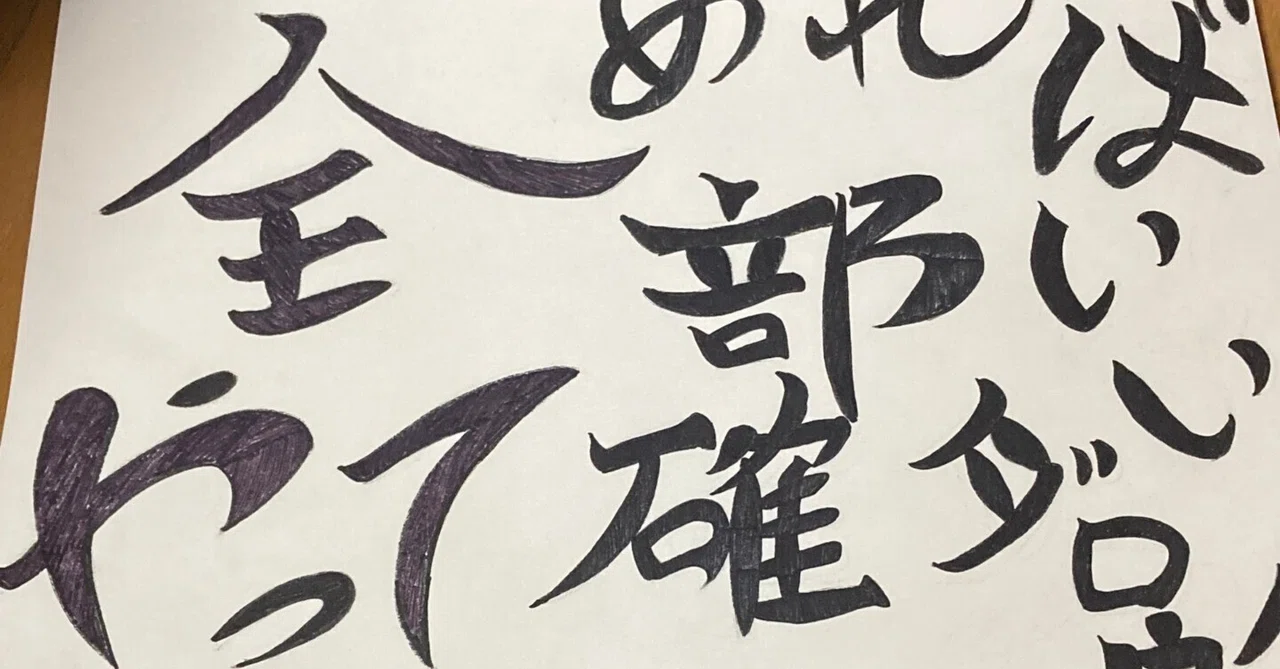 全部
やって
確
めれば
いい
ダロ